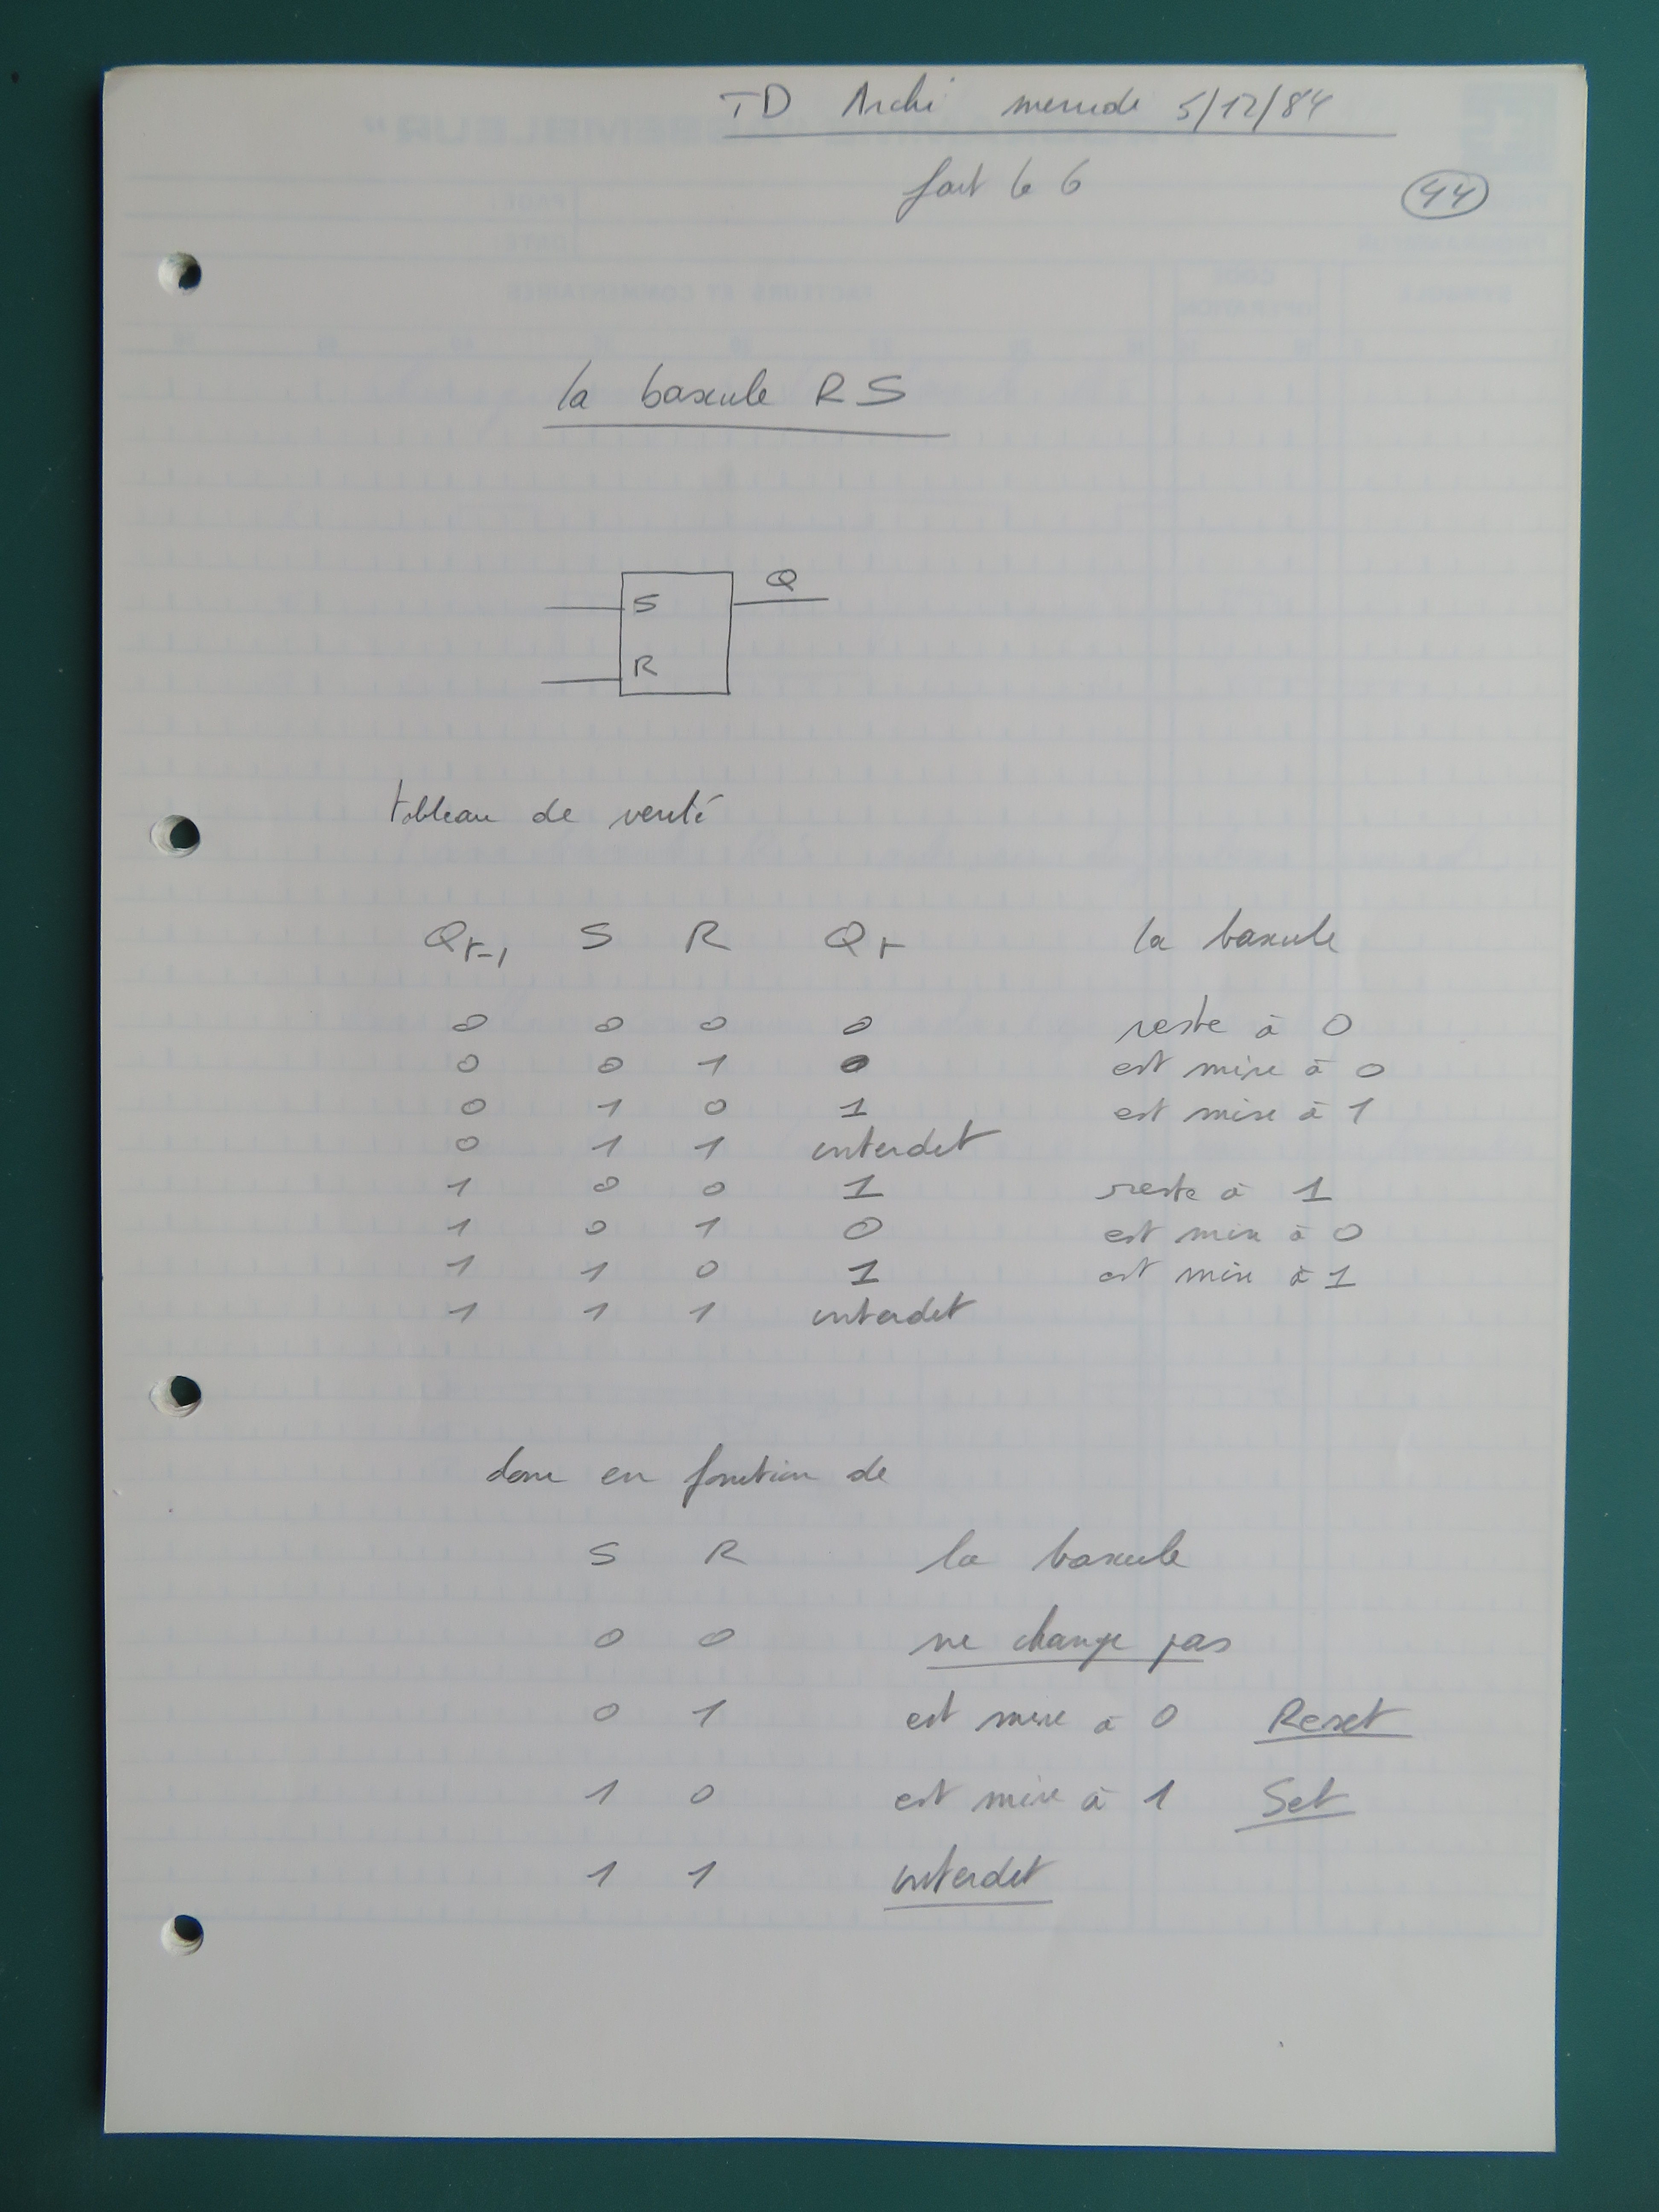 TD Archi mercredi 5/12/84
fait le 6
44
la bascule RS
S
Q
R
tableau de verité
Qt-1 S R Qt la bascule
0 0 0 0 reste à 0
0 0 1 0 est mise à 0
0 1 0 1 est mise à 1
0 1 1 interdit
1 0 0 1 reste à 1
1 0 1 0 est mise à 0
1 1 0 1 est mise à 1
1 1 1 interdit
donc en fonction de
S R la bascule
0 0 ne change pas
0 1 est mise à 0 Reset
1 0 est mise à 1 Set
1 1 interdit